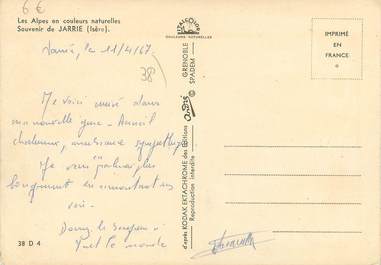 6 €
Les Alpes en couleurs naturelles
Souvenir de JARRIE (Isère).
Jarrie, le 11/4/67.
38
Me voici arrivé dans
ma nouvelle gare - Accueil
chaleureux, ambiance sympathique
Je vous en parlerai plus
longuement en remontant
voir.
Donnez le bonjour à
tout le monde
38 D 4
COULEURS NATURELLES
GRENOBLE
SPADEM
André ©
d'après KODAK EKTACHROME des Éditions
Reproduction interdite
IMPRIMÉ
EN
FRANCE